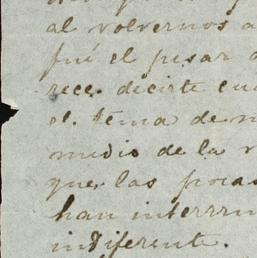 al volvernos a
fué el pesar
rece decirte cu
el tema de m
medio de la
que las poca
han interrru
indiferente.